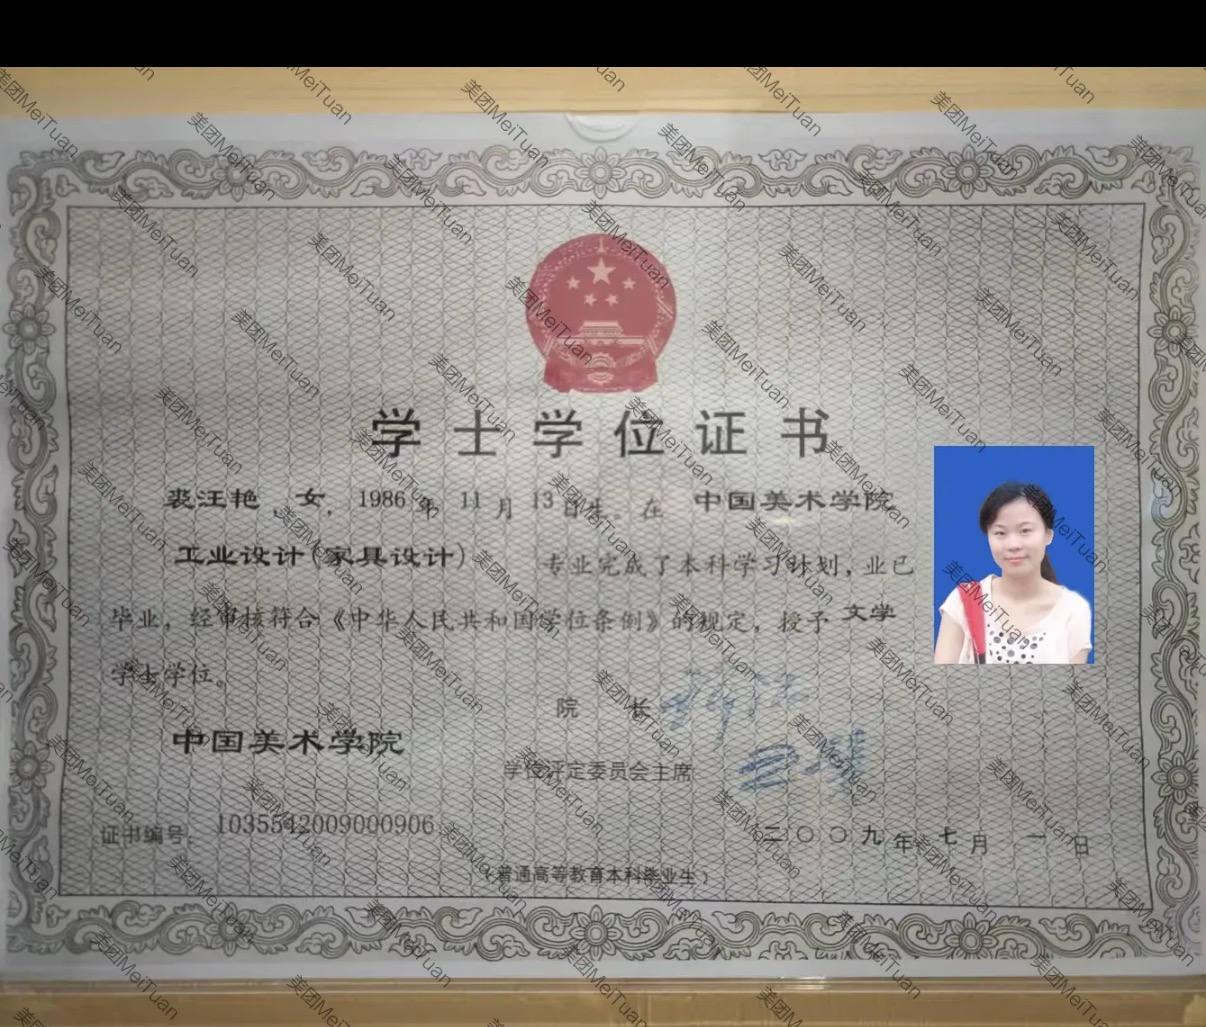 学士学位证书
裘汪艳，女 1986年 11月 13日生。在 中国美术学院
工业设计(家具设计) 专业完成了本科学习计划，业已
毕业，经审核符合《中华人民共和国学位条例》的规定，授予 文学
学士学位。
院 长
中国美术学院
学位评定委员会主席
证书编号 1035542009000906
二〇〇九年 七月 一日
(普通高等教育本科毕业生)
美团MeiTuan